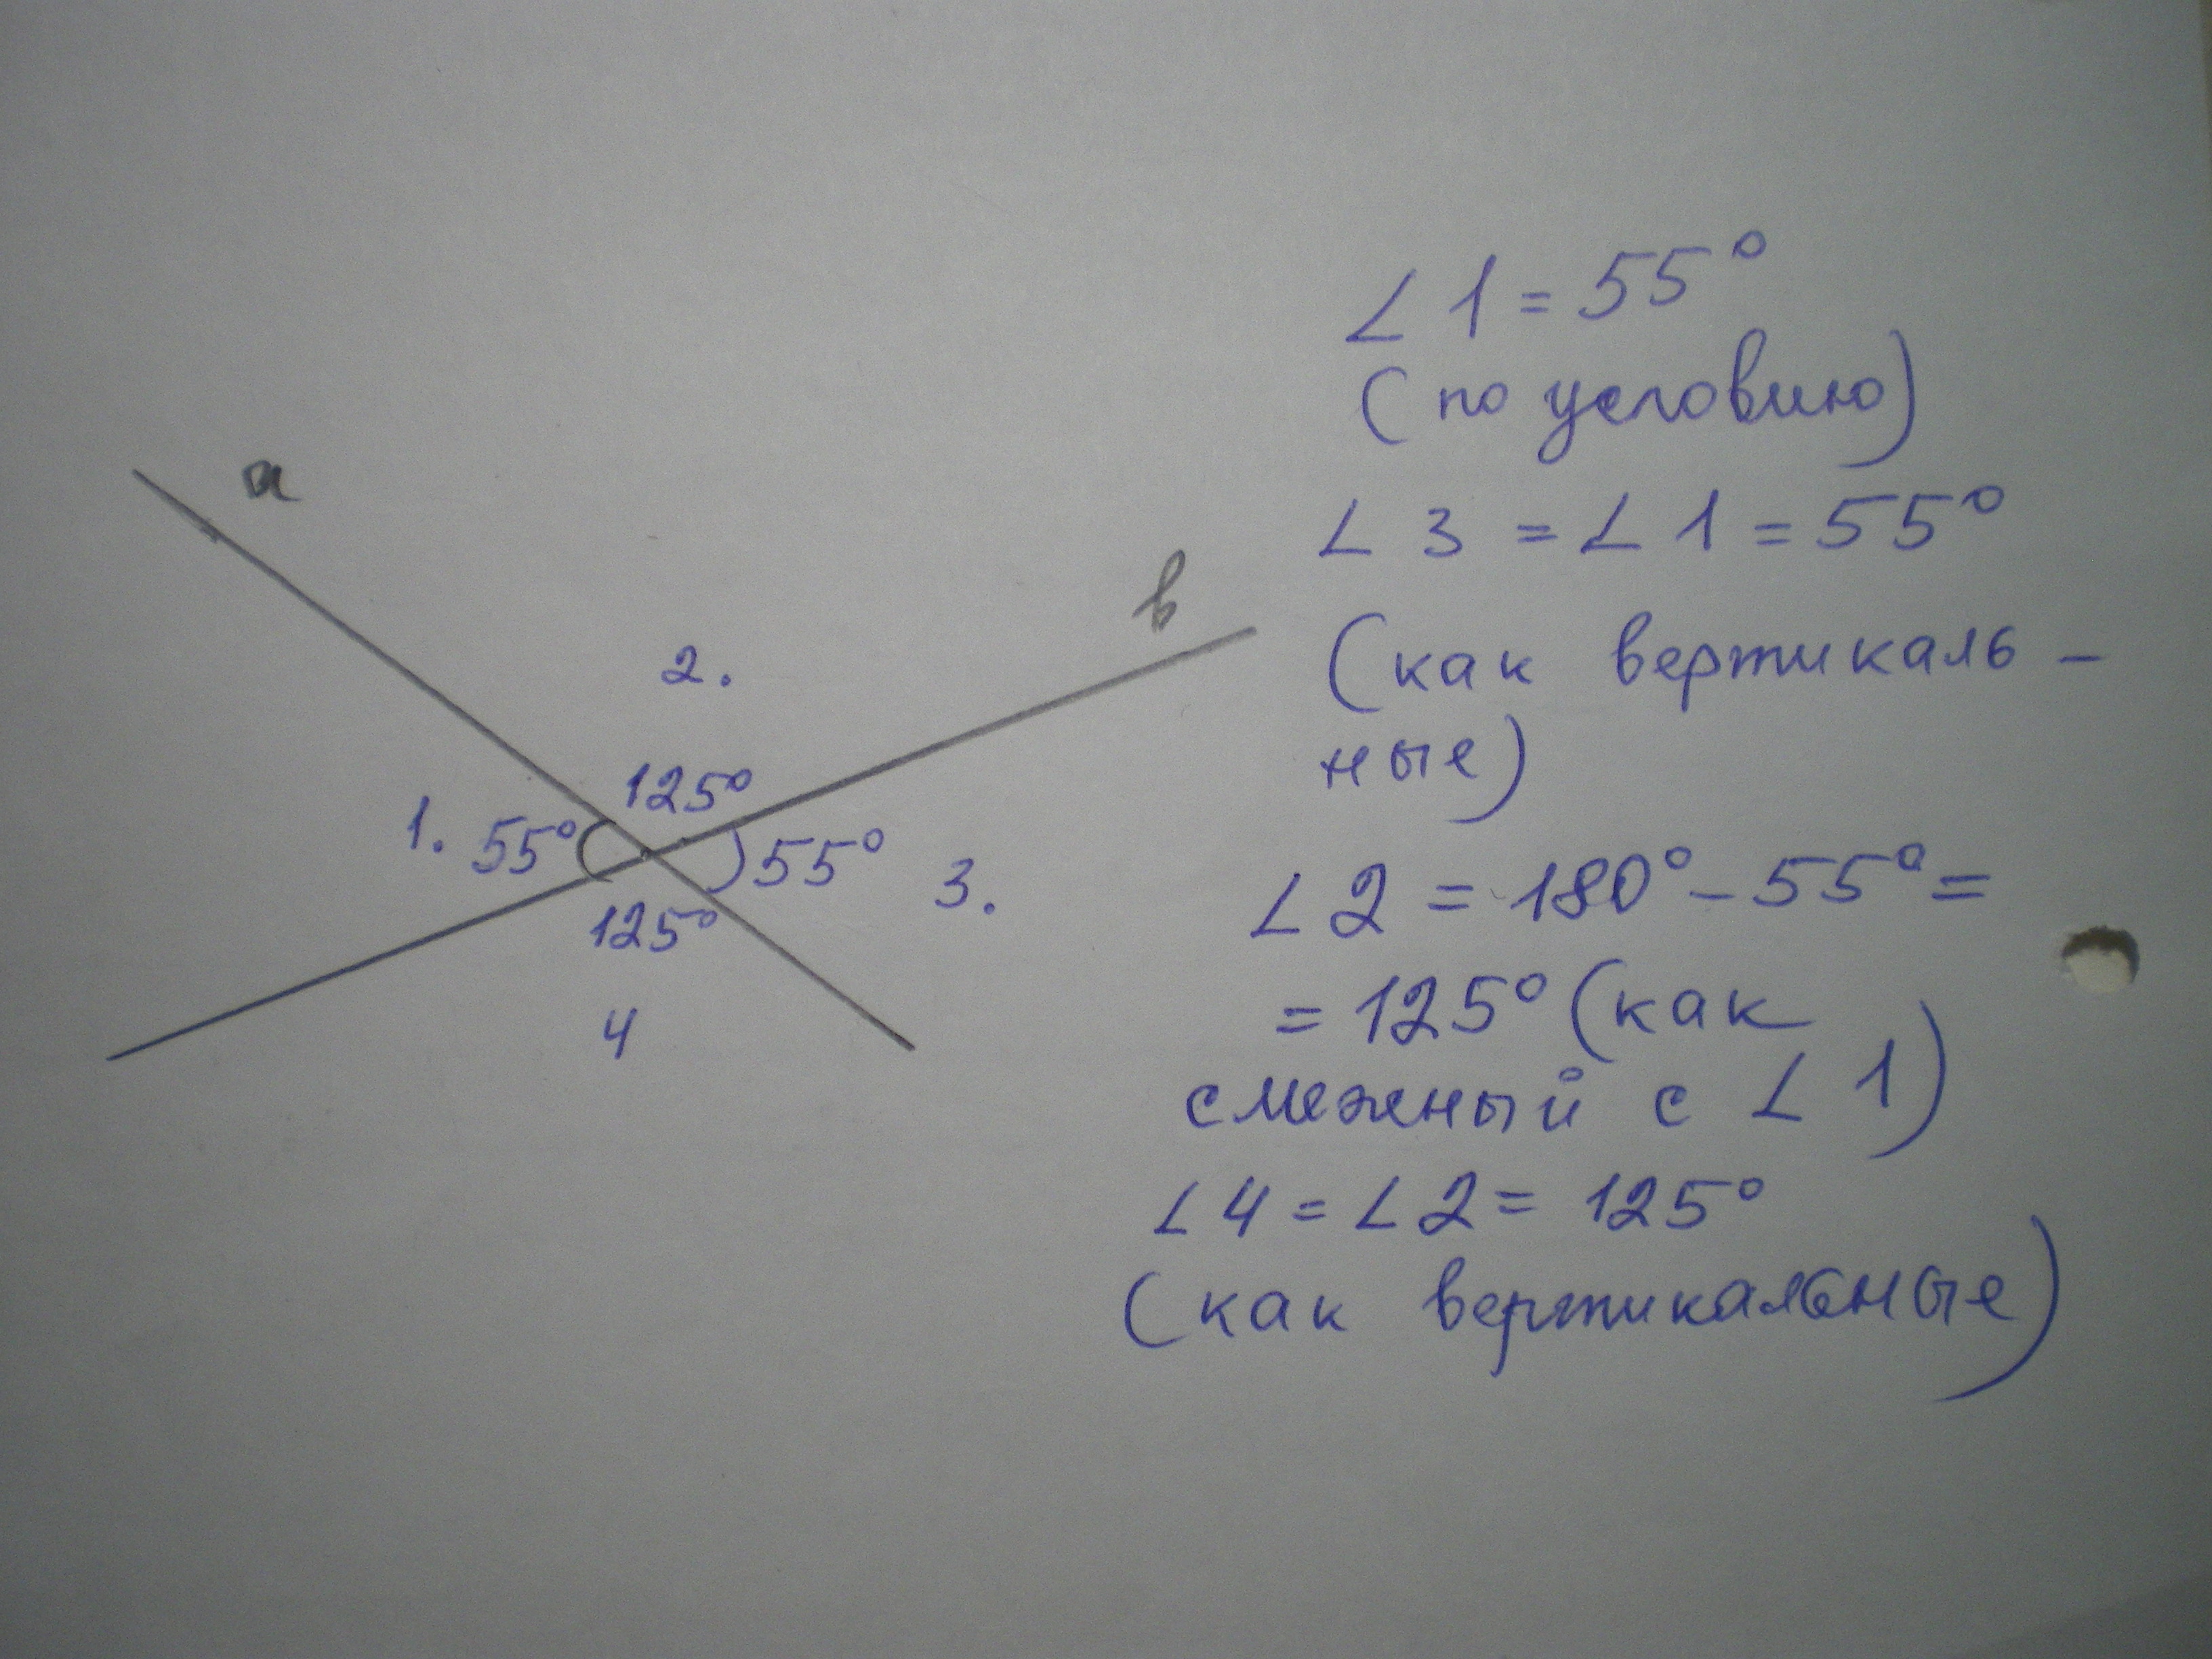 a
b
2.
125°
1. 55°
55° 3.
125°
4
∠1 = 55°
(по условию)
∠3 = ∠1 = 55°
(как вертикаль-
ные)
∠2 = 180° - 55° =
= 125° (как
смежный с ∠1)
∠4 = ∠2 = 125°
(как вертикальные)